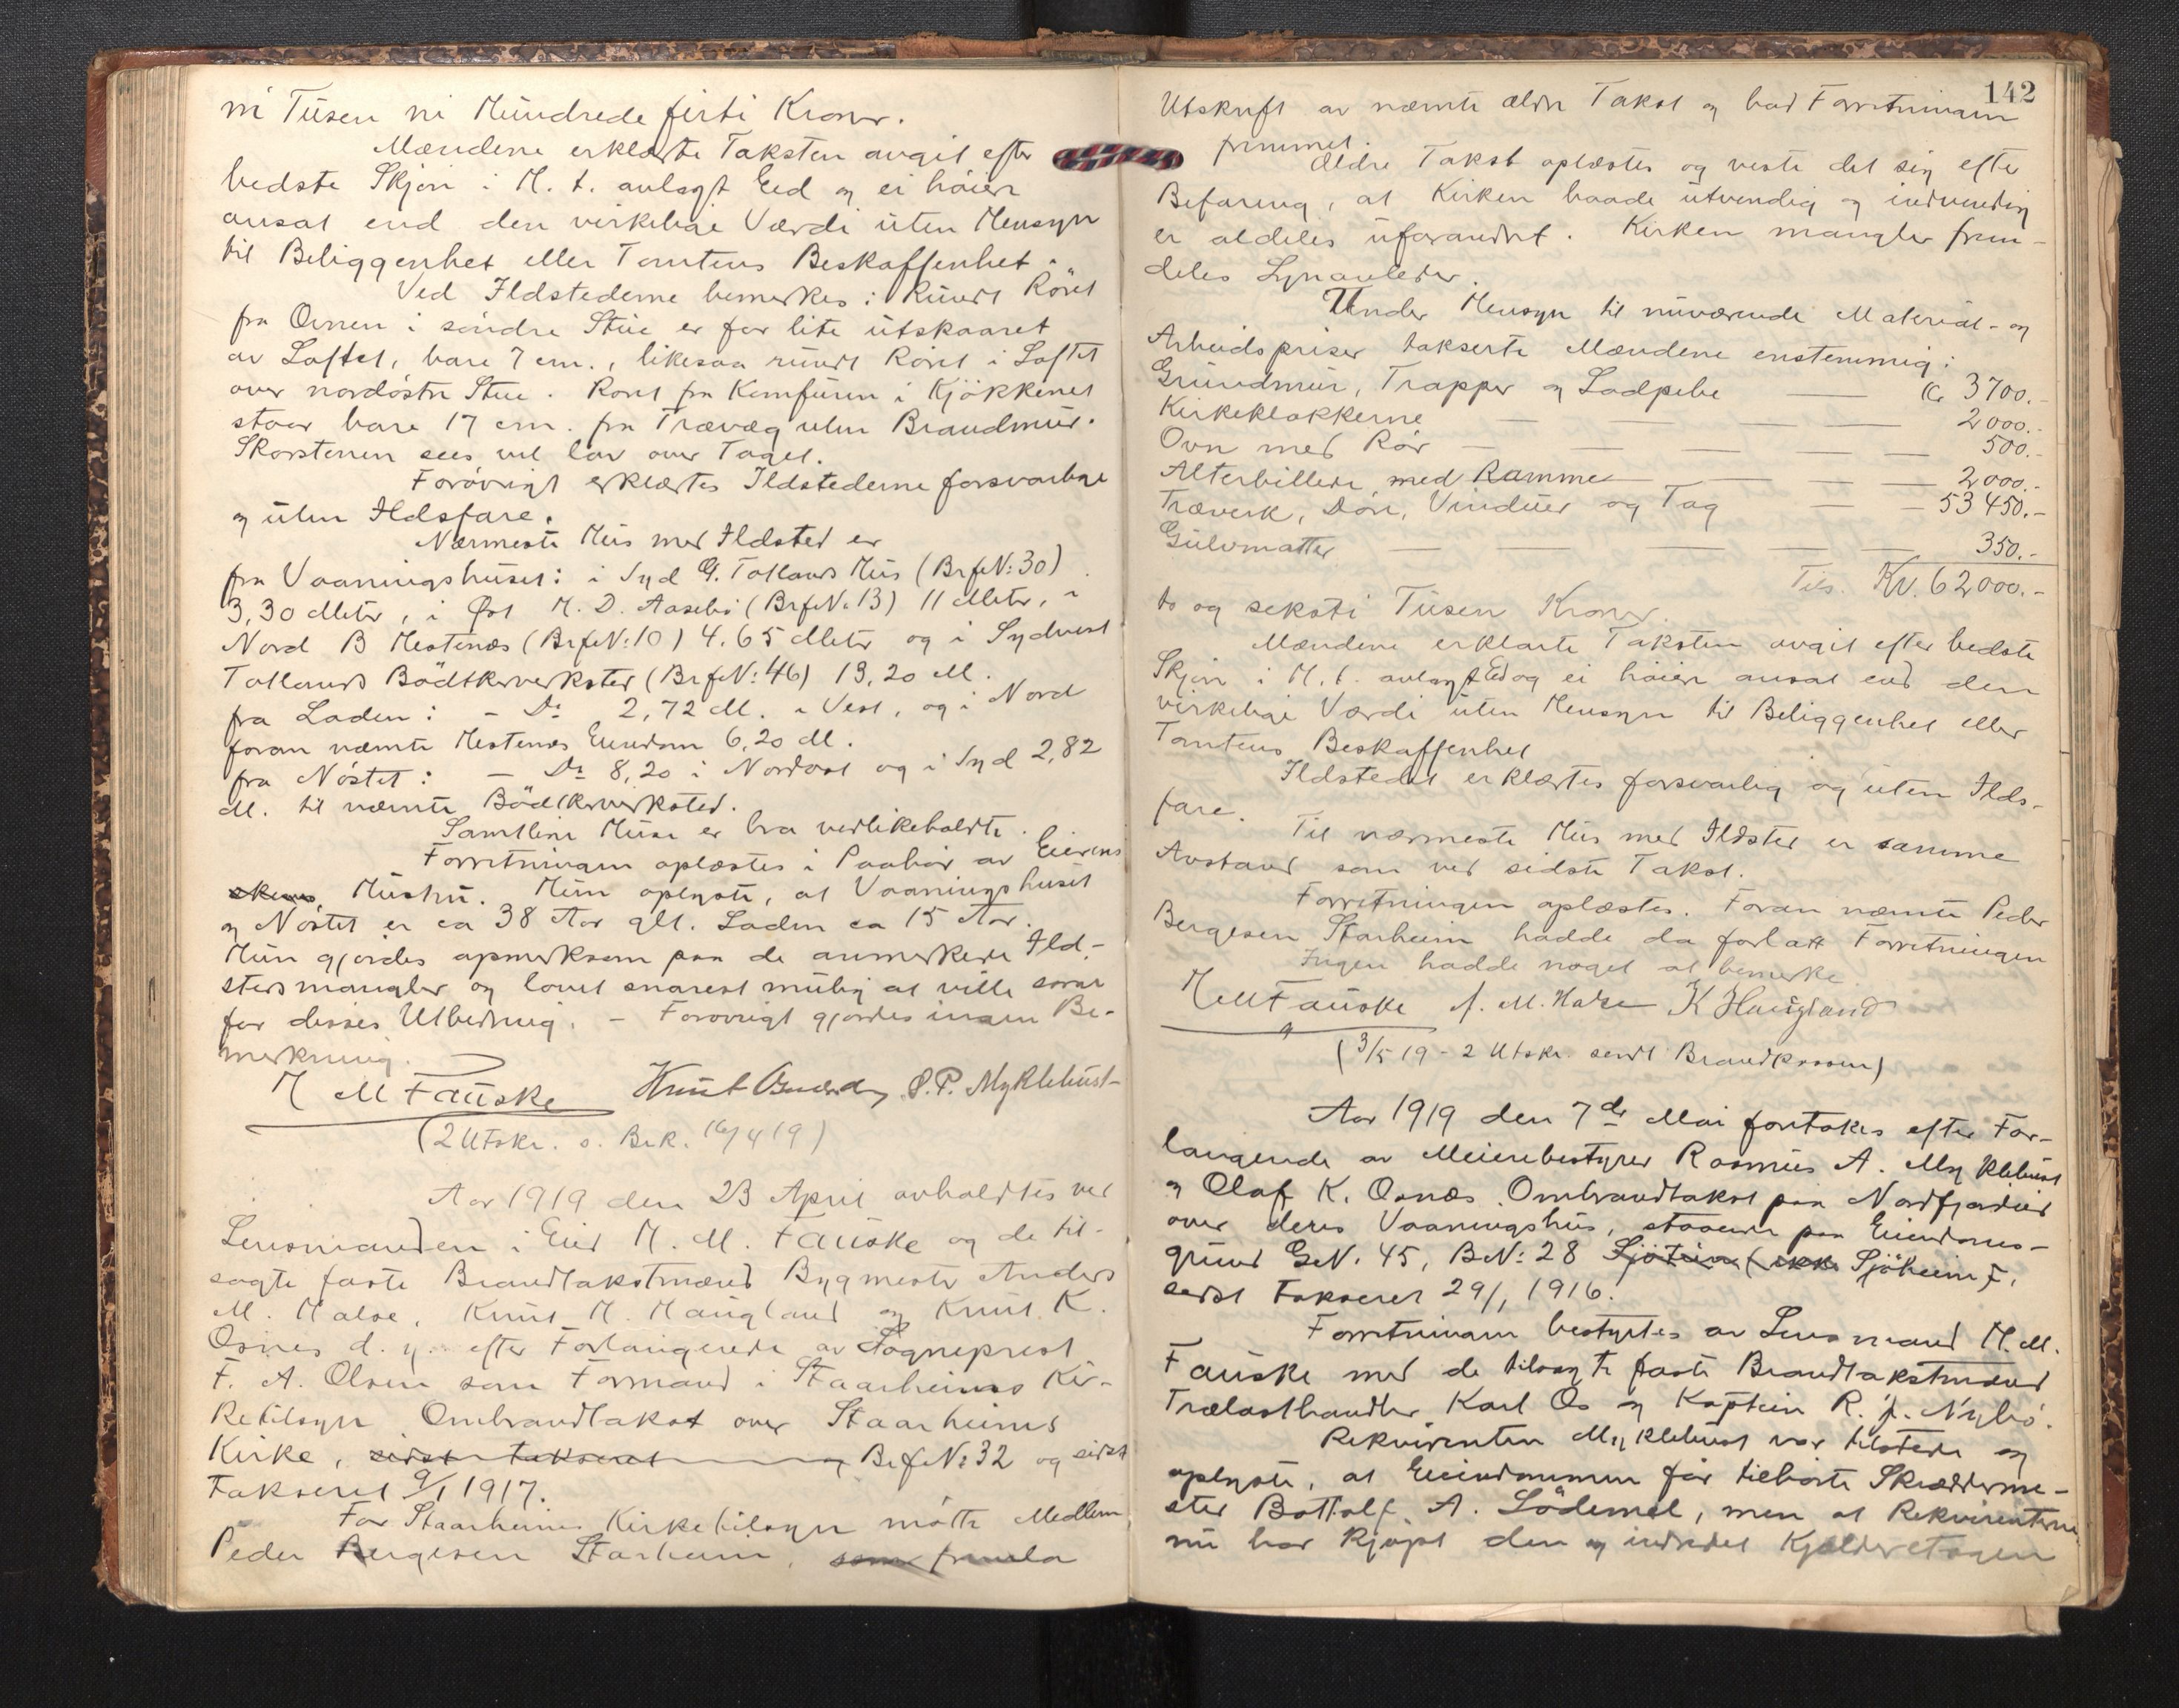 ni Tusen ni Hundrede firti Kroner.
Mændene erklærte Taksten avgit efter
bedste Skjøn i H. t. avlagt Eed og ei høiere
ansat end den virkelige Værdi uten Hensyn
til Beliggenhet eller Tomtens Beskaffenhet.
Ved Ildstederne bemerkes: Rundt Röret
fra Ovnen i söndre Stue er for lite utskaaret
av Loftet, bare 7 cm., likesaa rundt Röret i Loftet
over nordöstre Stue. Röret fra Komfüren i Kjökkenet
staar bare 17 cm. fra Trævæg uten Brandmur.
Skorstenen sees vel lav over Taget.
Forøvrigt erklærtes Ildstederne forsvarlige
og uten Ildsfare.
Nærmeste Hus med Ildsted er
fra Vaaningshuset: i Syd G. Totlands Hus (BrfN: 30)
3,30 Meter, i Øst H. D. Aasebö (BrfN: 13) 11 Meter, i
Nord B Hestenæs (BrfN: 10) 4.65 Meter og i Sydvest
Totlands Bödtkerverksted (BrfN: 46) 13,20 M.
fra Laden: - Do 2,72 M. i Vest, og i Nord
foran nævnte Hestenæs Eiendom 6,20 M.
fra Nöstet: - Do 8,20 i Nordost og i Syd 2,82
M. til nævnte Bödtkerverksted.
Samtlige Huse er bra vedlikeholdte.
Forretningen oplæstes i Paahör av Eierens
Hustru. Hun oplyste, at Vaaningshuset
og Nöstet er ca 38 Aar glt. Laden ca 15 Aar.
Hun gjordes opmerksom paa de anmerkede Ild-
stedsmangler og lovet snarest mulig at ville sörge
for disses Utbedring. - Forøvrigt gjordes ingen Be-
merkning.
H M Fauske Knut O. P. Myklebust
(2 Utskr. s. Br.K. 16/4 19)
Aar 1919 den 23 April avholdtes ved
Lensmanden i Eid H. M. Fauske og de til-
sagte faste Brandtakstmænd Bygmester Anders
M. Halse, Knut H. Haugland og Knut K.
Osnes d. y. efter Forlangende av Sogneprest
F. A. Olsen som Formand i Staarheims Kir-
ketilsyn Ombrandtakst over Staarheims
Kirke, sidst takseret og BrfN: 32 og sidst
takseret 9/1 1917.
For Staarheims Kirketilsyn mötte Medlem
Peder Bergesen Starheim, som fremla
142
Utskrift av nævnte ældre Takst og bad Forretningen
fremmet.
Ældre Takst oplæstes og viste det sig efter
Befaring, at Kirken baade utvendig og indvendig
er aldeles uforandret. Kirken mangler frem-
deles Lynavleder.
Under Hensyn til nuværende Material- og
Arbeidspriser takserte Mændene enstemmig:
Grundmur, Trapper og Ladpibe Kr 3700.-
Kirkeklokkerne 2000.-
Ovn med Rör 500.-
Alterbillede med Ramme 2000.-
Træverk, Döre, Vinduer og Tag 53450.-
Gulvmatter 350.-
Tils. Kr. 62000.-
to og seksti Tusen Kroner.
Mændene erklærte Taksten avgit efter bedste
Skjøn i H. t. avlagt Ed og ei høiere ansat end den
virkelige Værdi uten Hensyn til Beliggenhet eller
Tomtens Beskaffenhet
Ildstedet erklærtes forsvarlig og uten Ilds-
fare.
Til nærmeste Hus med Ildsted er samme
Avstand som ved sidste Takst.
Forretningen oplæstes. Foran nævnte Peder
Bergesen Starheim hadde da forlatt Forretningen
Ingen hadde noget at bemerke.
H M Fauske A. M. Halse K Haugland
(3/5 19 - 2 Utskr. sendt Brandkassen)
Aar 1919 den 7de Mai foretokes efter For-
langende av Meieribestyrer Rasmus A. Myklebust
og Olaf K. Osnæs Ombrandtakst paa Nordfjordeid
over deres Vaaningshus, staaende paa Eiendoms-
grund GN. 45, BN: 28 Sjöheim F,
sidst takseret 29/1 1916.
Forretningen bestyrtes av Lensmand H. M.
Fauske med de tilsagte faste Brandtakstmænd
Trælasthandler Karl Os og Kaptein R. J. Nybö.
Rekvirenten Myklebust var tilstede og
oplyste, at Eiendommen för tilhörte Skrædderme-
ster Bottolf A. Lödemel, men at Rekvirenterne
nu har kjöpt den og indredet Kjelderetagen